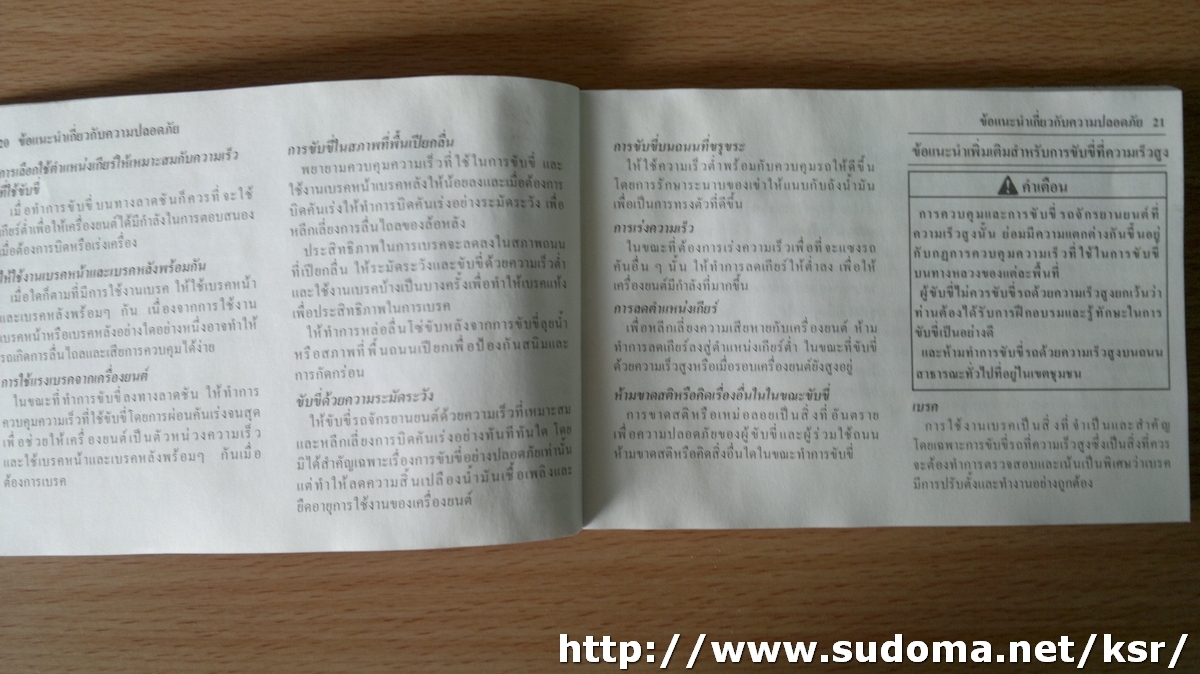 20 ข้อแนะนำเกี่ยวกับความปลอดภัย
การเลือกใช้ตำแหน่งเกียร์ให้เหมาะสมกับความเร็ว
ที่ใช้ขับขี่
เมื่อทำการขับขี่บนทางลาดชันก็ควรที่จะใช้
เกียร์ต่ำเพื่อให้เครื่องยนต์ได้มีกำลังในการตอบสนอง
เมื่อต้องการบิดหรือเร่งเครื่อง
ให้ใช้งานเบรคหน้าและเบรคหลังพร้อมกัน
เมื่อใดก็ตามที่มีการใช้งานเบรค ให้ใช้เบรคหน้า
และเบรคหลังพร้อมๆ กัน เนื่องจากการใช้งาน
เบรคหน้าหรือเบรคหลังอย่างใดอย่างหนึ่งอาจทำให้
รถเกิดการลื่นไถลและเสียการควบคุมได้ง่าย
การใช้แรงเบรคจากเครื่องยนต์
ในขณะที่ทำการขับขี่ลงทางลาดชัน ให้ทำการ
ควบคุมความเร็วที่ใช้ขับขี่โดยการผ่อนคันเร่งจนสุด
เพื่อช่วยให้เครื่องยนต์เป็นตัวหน่วงความเร็ว
และใช้เบรคหน้าและเบรคหลังพร้อมๆ กันเมื่อ
ต้องการเบรค
การขับขี่ในสภาพที่พื้นเปียกลื่น
พยายามควบคุมความเร็วที่ใช้ในการขับขี่ และ
ใช้งานเบรคหน้าเบรคหลังให้น้อยลงและเมื่อต้องการ
บิดคันเร่งให้ทำการบิดคันเร่งอย่างระมัดระวัง เพื่อ
หลีกเลี่ยงการลื่นไถลของล้อหลัง
ประสิทธิภาพในการเบรคจะลดลงในสภาพถนน
ที่เปียกลื่น ให้ระมัดระวังและขับขี่ด้วยความเร็วต่ำ
และใช้งานเบรคบ้างเป็นบางครั้งเพื่อทำให้เบรคแห้ง
เพื่อประสิทธิภาพในการเบรค
ให้ทำการหล่อลื่นโซ่ขับหลังจากการขับขี่ลุยน้ำ
หรือสภาพที่พื้นถนนเปียกเพื่อป้องกันสนิมและ
การกัดกร่อน
ขับขี่ด้วยความระมัดระวัง
ให้ขับขี่รถจักรยานยนต์ด้วยความเร็วที่เหมาะสม
และหลีกเลี่ยงการบิดคันเร่งอย่างทันทีทันใด โดย
มิได้สำคัญเฉพาะเรื่องการขับขี่อย่างปลอดภัยเท่านั้น
แต่ทำให้ลดความสิ้นเปลืองน้ำมันเชื้อเพลิงและ
ยืดอายุการใช้งานของเครื่องยนต์
ข้อแนะนำเกี่ยวกับความปลอดภัย 21
การขับขี่บนถนนที่ขรุขระ
ให้ใช้ความเร็วต่ำพร้อมกับควบคุมรถให้ดีขึ้น
โดยการรักษาระนาบของเข่าให้แนบกับถังน้ำมัน
เพื่อเป็นการทรงตัวที่ดีขึ้น
การเร่งความเร็ว
ในขณะที่ต้องการเร่งความเร็วเพื่อที่จะแซงรถ
คันอื่น ๆ นั้น ให้ทำการลดเกียร์ให้ต่ำลง เพื่อให้
เครื่องยนต์มีกำลังที่มากขึ้น
การลดตำแหน่งเกียร์
เพื่อหลีกเลี่ยงความเสียหายกับเครื่องยนต์ ห้าม
ทำการลดเกียร์ลงสู่ตำแหน่งเกียร์ต่ำ ในขณะที่ขับขี่
ด้วยความเร็วสูงหรือเมื่อรอบเครื่องยนต์ยังสูงอยู่
ห้ามขาดสติหรือคิดเรื่องอื่นใดในขณะขับขี่
การขาดสติหรือเหม่อลอยเป็นสิ่งที่อันตราย
เพื่อความปลอดภัยของผู้ขับขี่และผู้ร่วมใช้ถนน
ห้ามขาดสติหรือคิดสิ่งอื่นใดในขณะทำการขับขี่
ข้อแนะนำเพิ่มเติมสำหรับการขับขี่ที่ความเร็วสูง
คำเตือน
การควบคุมและการขับขี่รถจักรยานยนต์ที่
ความเร็วสูงนั้น ย่อมมีความแตกต่างกันขึ้นอยู่
กับกฎการควบคุมความเร็วที่ใช้ในการขับขี่
บนทางหลวงของแต่ละพื้นที่
ผู้ขับขี่ไม่ควรขับขี่รถด้วยความเร็วสูงยกเว้นว่า
ท่านต้องได้รับการฝึกอบรมและรู้ทักษะในการ
ขับขี่เป็นอย่างดี
และห้ามทำการขับขี่รถด้วยความเร็วสูงบนถนน
สาธารณะทั่วไปที่อยู่ในเขตชุมชน
เบรค
การใช้งานเบรคเป็นสิ่งที่จำเป็นและสำคัญ
โดยเฉพาะการขับขี่รถที่ความเร็วสูงซึ่งเป็นสิ่งที่ควร
จะต้องทำการตรวจสอบและเน้นเป็นพิเศษว่าเบรค
มีการปรับตั้งและทำงานอย่างถูกต้อง
http://www.sudoma.net/ksr/